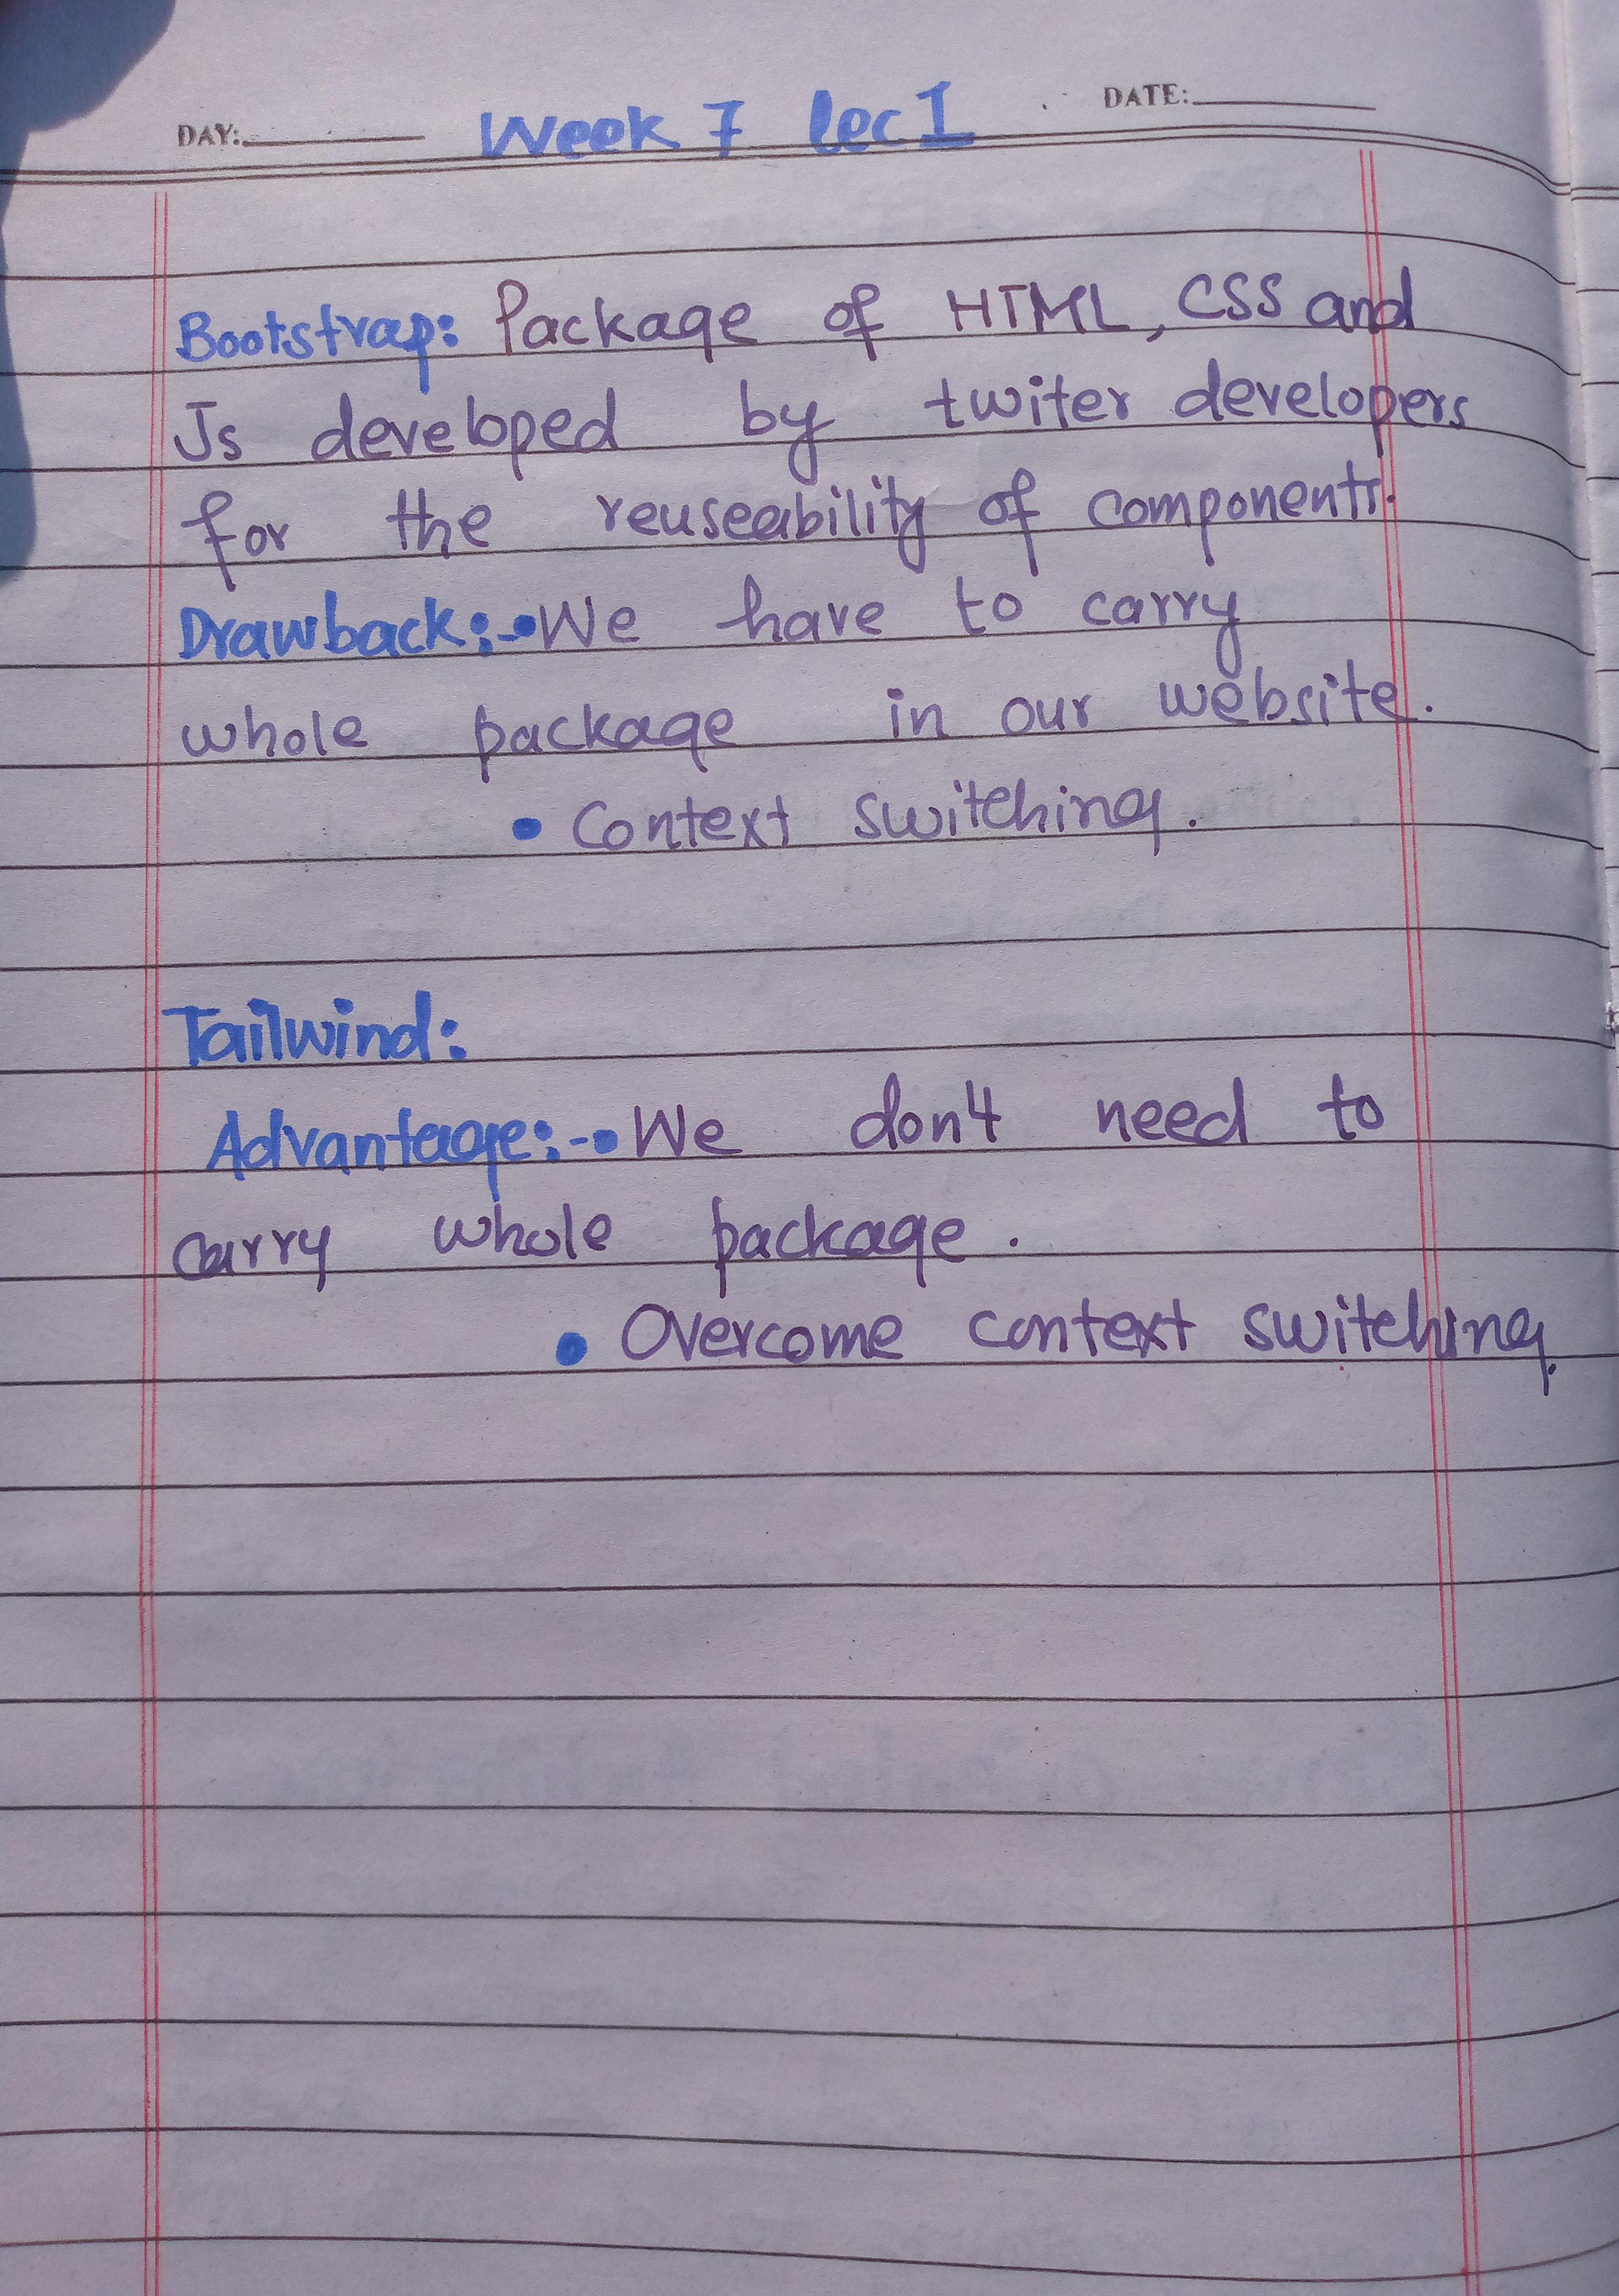 DAY: Week 7 lec 1 DATE:
Bootstrap: Package of HTML, CSS and
Js developed by twiter developers
for the reuseability of components.
Drawback:-•We have to carry
whole package in our website.
• Context switching.
Tailwind:
Advantage:-•We don't need to
carry whole package.
• Overcome context switching.